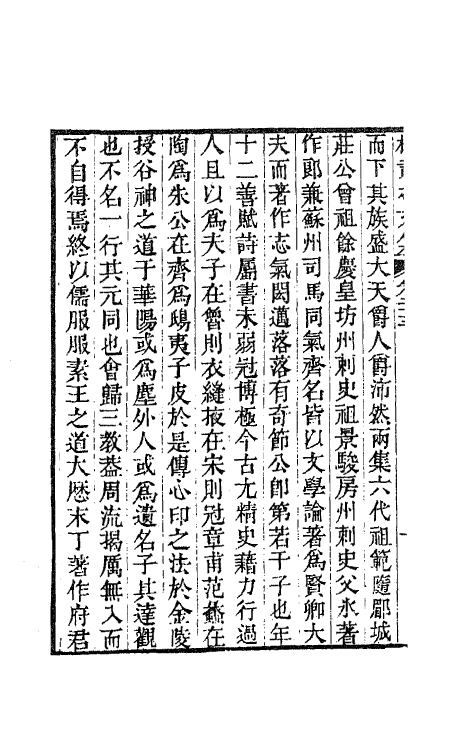 而下其族盛大天爵人爵沛然兩集六代祖範隨郿城
莊公曾祖餘慶皇坊州刺史祖景駿房州刺史父氷著
作郎兼蘇州司馬同氣齊名皆以文學論著爲賢卿大
夫而著作志氣閎邁落落有奇節公卽第若干子也年
十二善賦詩屬書未弱冠博極今古尤精史籍力行過
人且以爲夫子在魯則衣縫掖在宋則冠章甫范蠡在
陶爲朱公在齊爲鴟夷子皮於是傳心印之法於金陵
授谷神之道于華陽或爲塵外人或爲遺名子其達觀
也不名一行其元同也會歸三教葢周流揭厲無入而
不自得焉終以儒服服素王之道大厯末丁著作府君